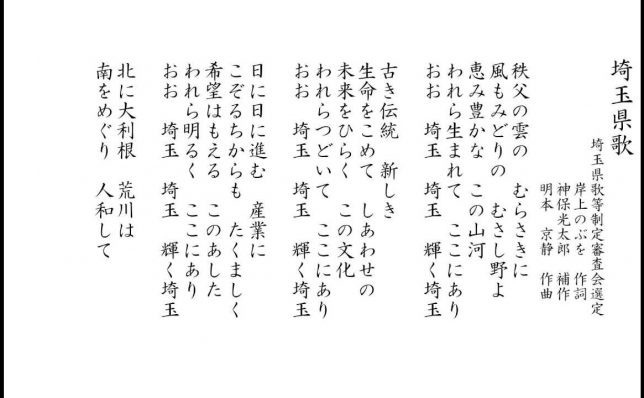 埼玉県歌
埼玉県歌等制定審査会選定
岸上のぶを　作詞
神保光太郎　補作
明本　京静　作曲
秩父の雲の　むらさきに
風もみどりの　むさし野よ
恵み豊かな　この山河
われら生まれて　ここにあり
おお　埼玉　埼玉　輝く埼玉
古き伝統　新しき
生命をこめて　しあわせの
未来をひらく　この文化
われらつどいて　ここにあり
おお　埼玉　埼玉　輝く埼玉
日に日に進む　産業に
こぞるちからも　たくましく
希望はもえる　このあした
われら明るく　ここにあり
おお　埼玉　埼玉　輝く埼玉
北に大利根　荒川は
南をめぐり　人和して